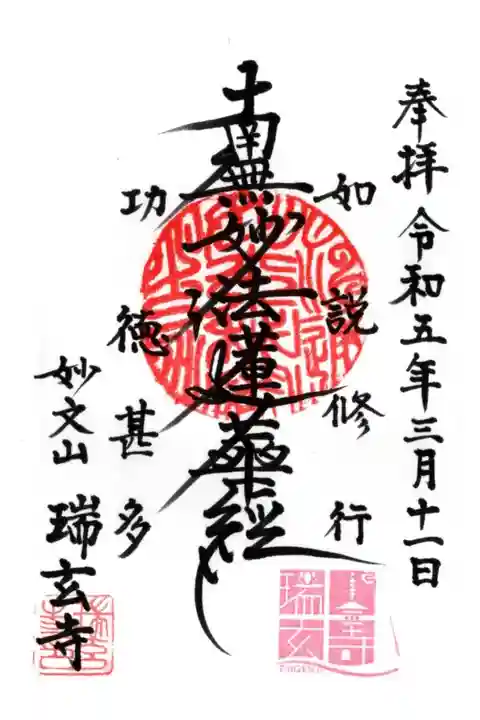 奉拝 令和五年三月十一日
如説修行
南無妙法蓮華経
功徳甚多
妙文山
瑞玄寺
瑞玄寺